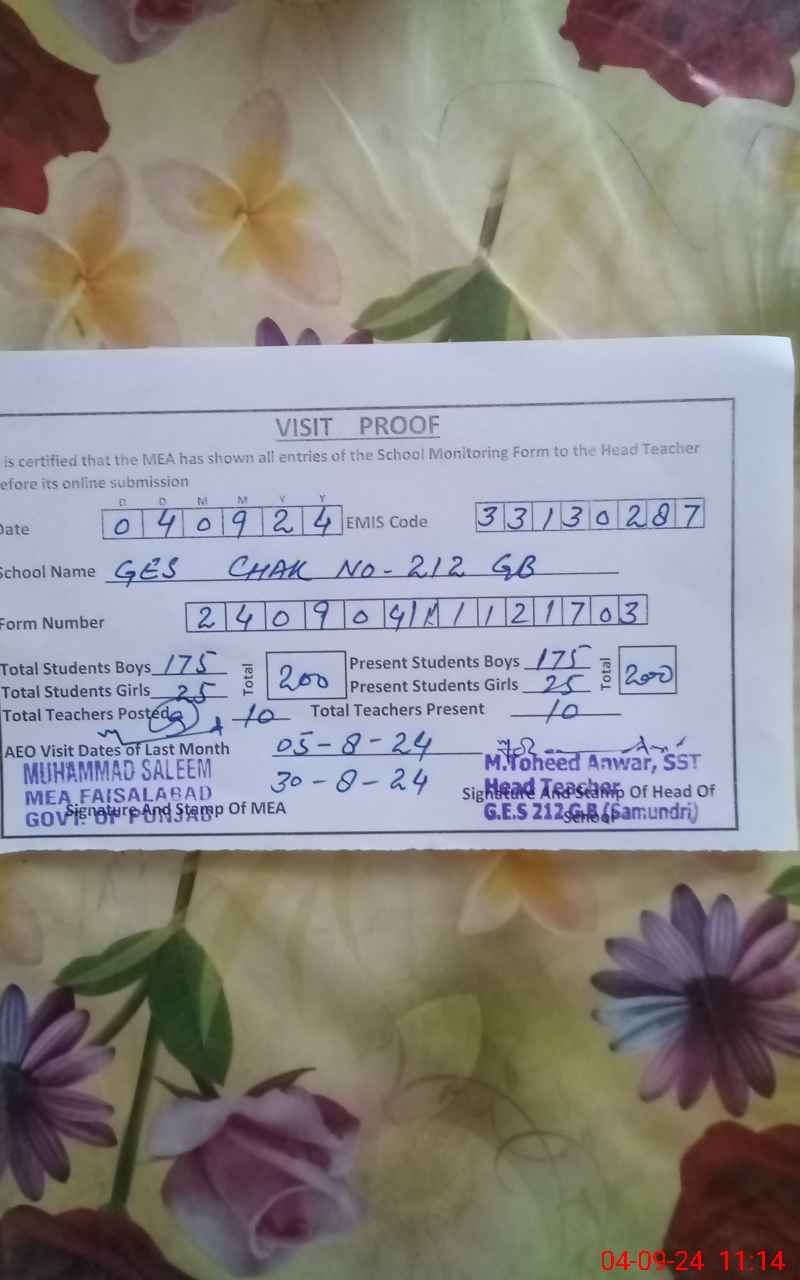 VISIT PROOF
is certified that the MEA has shown all entries of the School Monitoring Form to the Head Teacher
efore its online submission
D D M M Y Y
Date 040924 EMIS Code 33130287
School Name GES CHAK NO-212 GB
Form Number
Total Students Boys 175 Total 200 Present Students Boys 175 Total 200
Total Students Girls 25 Present Students Girls 25
Total Teachers Posted 10 Total Teachers Present 10
AEO Visit Dates of Last Month 05-8-24
30-8-24
MUHAMMAD SALEEM
MEA FAISALABAD
GOVT. OF PUNJAB
Signature And Stamp Of MEA
M.Toheed Anwar, SST
Head Teacher
G.E.S 212 G.B (Samundri)
Signature And Stamp Of Head Of
School
04-09-24 11:14